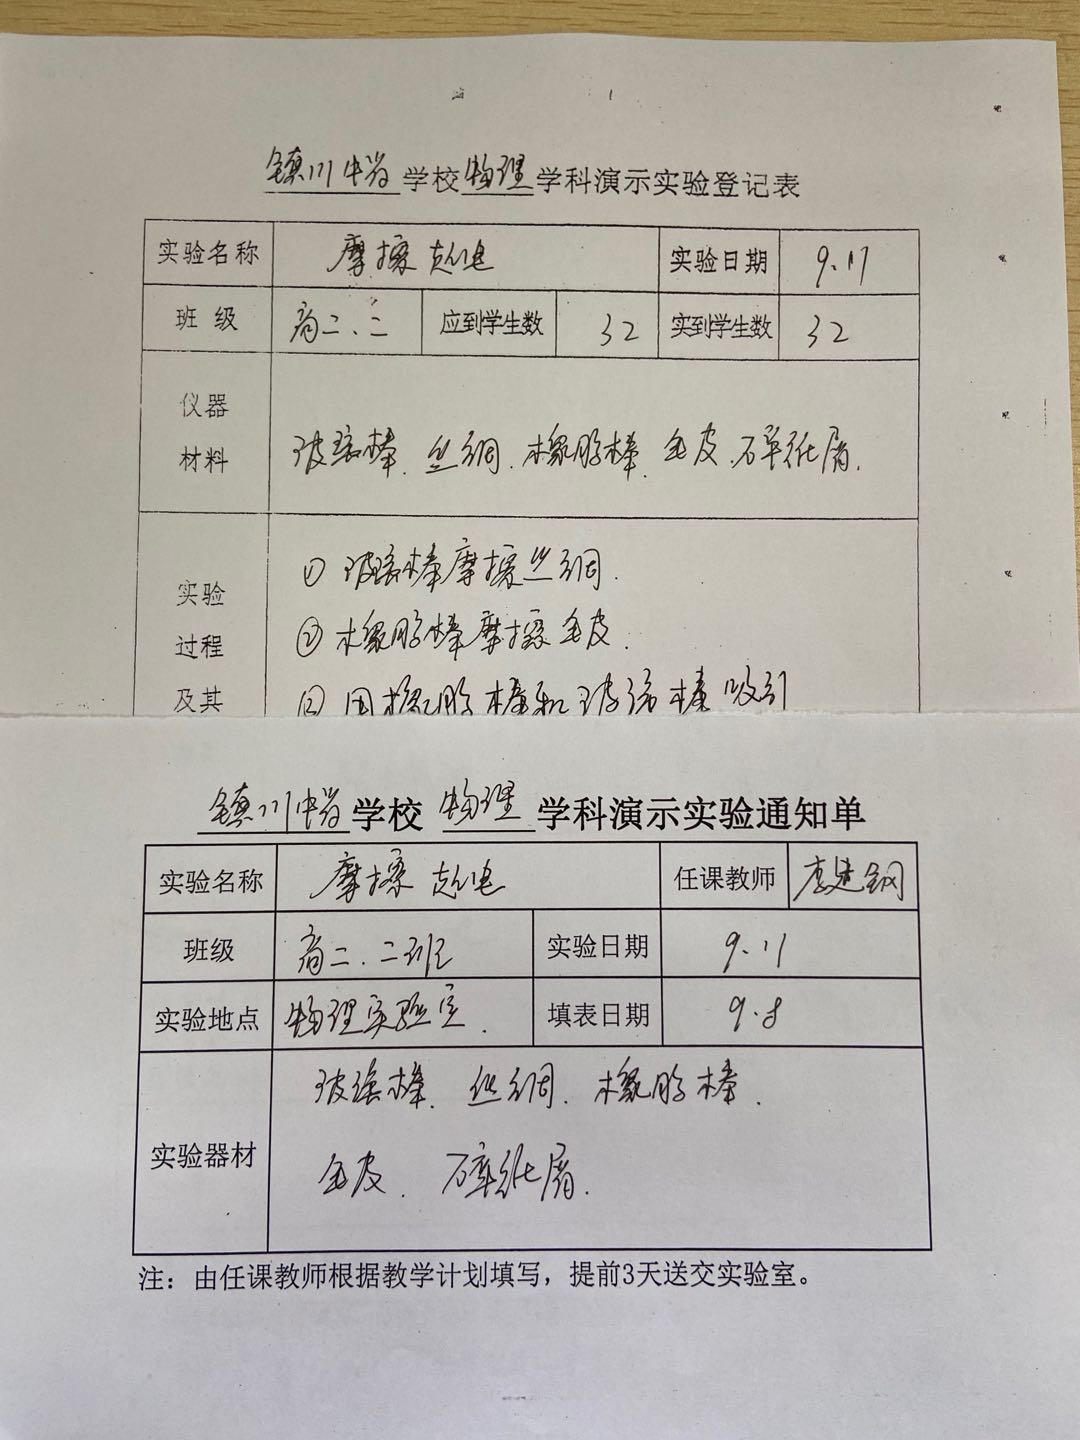 镇川中学学校物理学科演示实验登记表
实验名称 摩擦起电 实验日期 9.11
班 级 高二、二 应到学生数 32 实到学生数 32
仪器
材料
玻璃棒、丝绸、橡胶棒、毛皮、碎纸屑.
实验
过程
及其
① 玻璃棒摩擦丝绸.
② 橡胶棒摩擦毛皮.
③ 用橡胶棒和玻璃棒吸引
镇川中学学校 物理 学科演示实验通知单
实验名称 摩擦起电 任课教师 李建钢
班级 高二、二班 实验日期 9.11
实验地点 物理实验室. 填表日期 9.8
实验器材
玻璃棒、丝绸、橡胶棒.
毛皮、碎纸屑.
注：由任课教师根据教学计划填写，提前3天送交实验室。